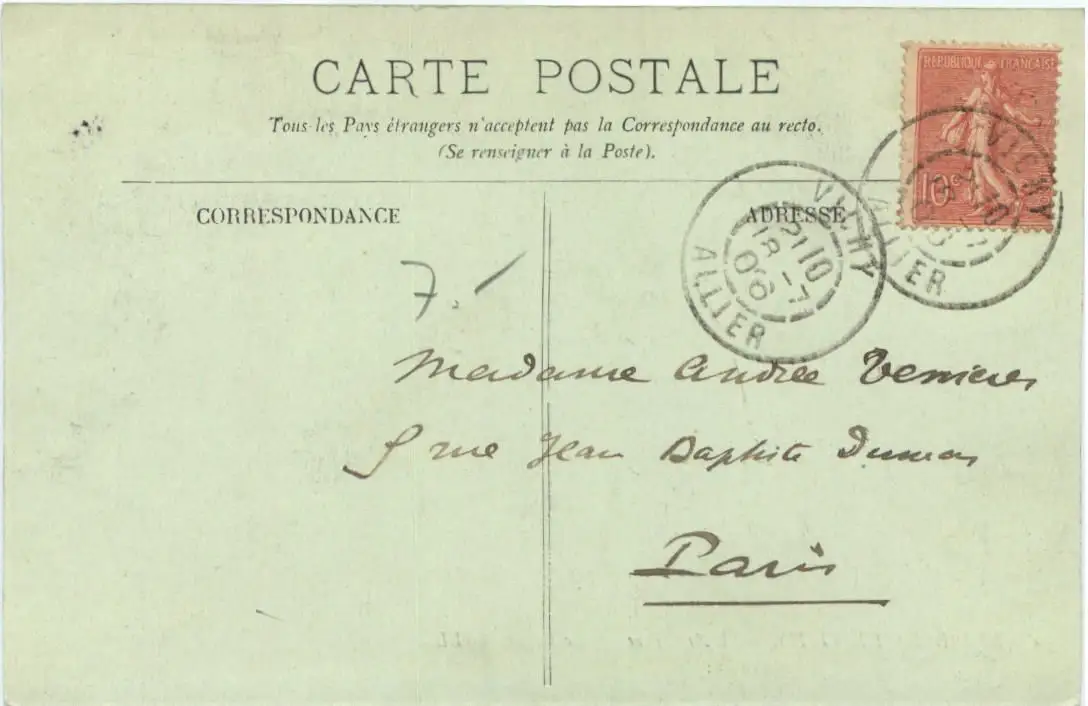 CARTE POSTALE
Tous les Pays étrangers n'acceptent pas la Correspondance au recto.
(Se renseigner à la Poste).
RÉPUBLIQUE FRANÇAISE
10c
CORRESPONDANCE
ADRESSE
VICHY
10
18 - 7
06
ALLIER
VICHY
ALLIER
7.
Madame Andrée
5 rue Jean Baptiste Dumas
Paris